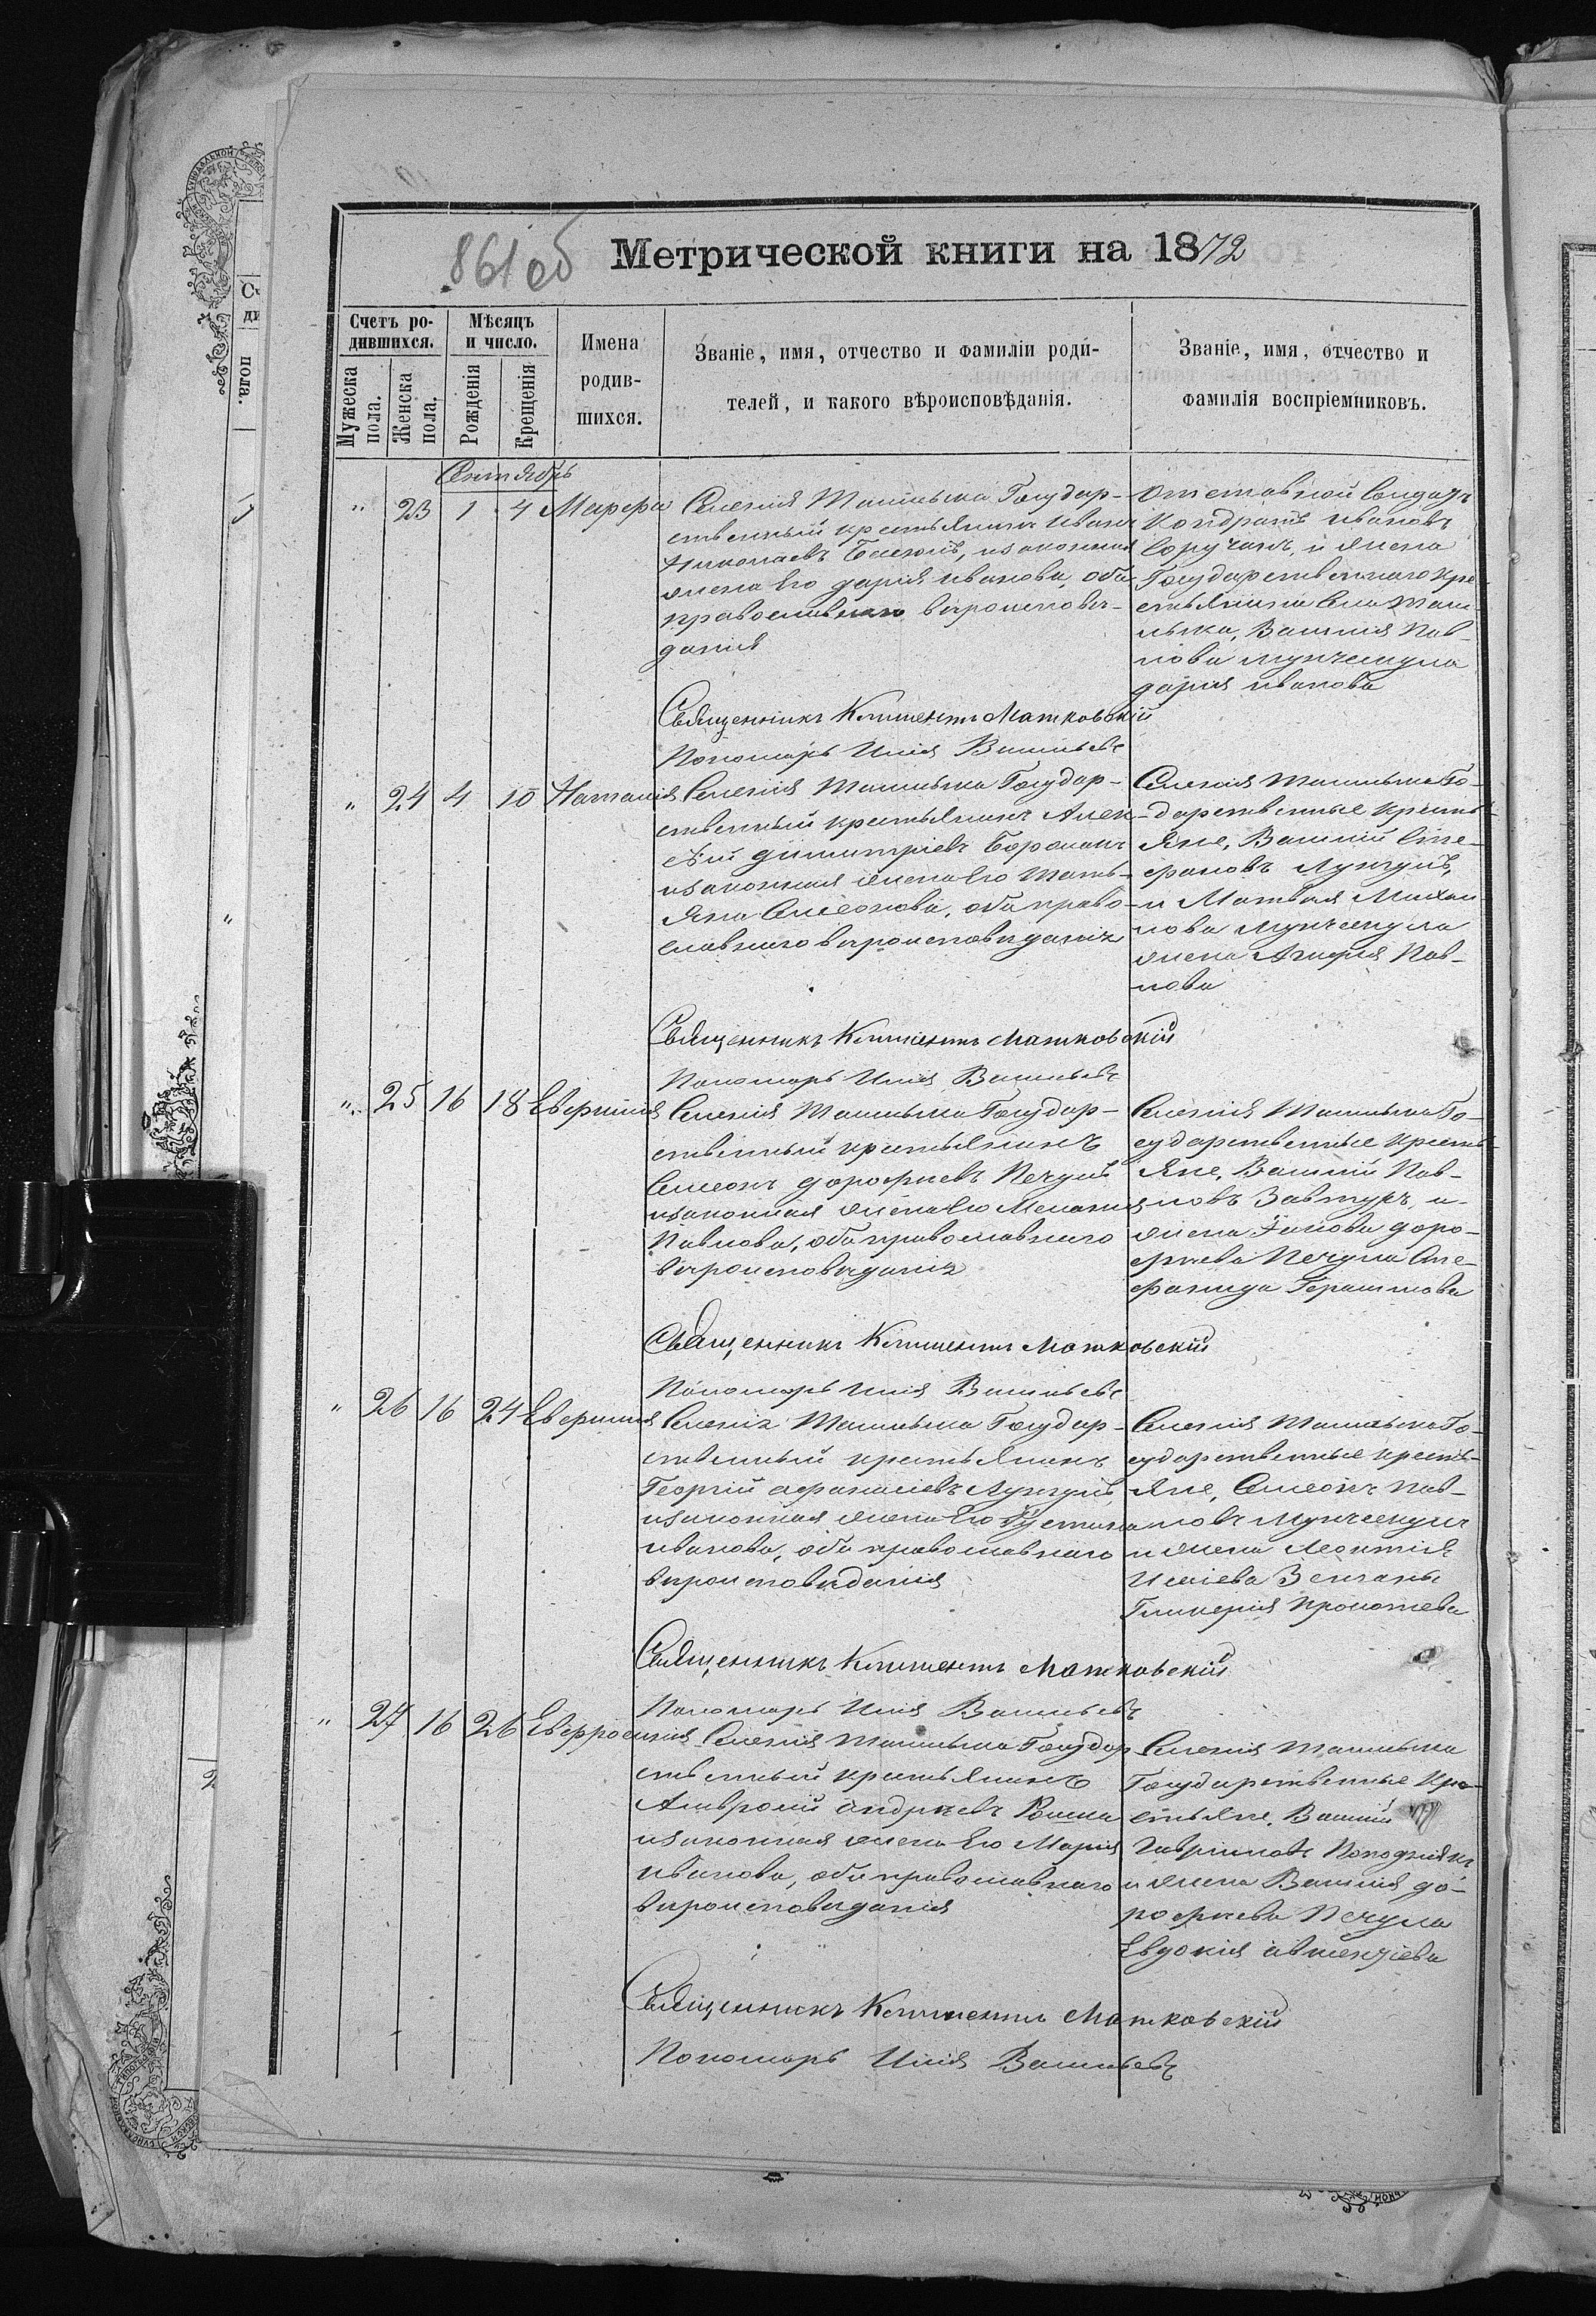 861 об
Метрической книги на 1872
Счетъ ро-
дившихся.
Мѣсяцъ
и число.
Имена
родив-
шихся.
Званіе, имя, отчество и фамиліи роди-
телей, и какого вѣроисповѣданія.
Званіе, имя, отчество и
фамилія воспріемниковъ.
Мужеска
пола.
Женска
пола.
Рожденія
Крещенія
Сентябрь
" 23 1 4 Марфа
Селенія Ташлыка Государ-
ственный крестьянинъ Иванъ
Николаевъ изаконная
жена Его дарія иванова, оба
православнаго вѣроисповѣ-
данія
Отставной Солдатъ
Кондратъ ивановъ
и жена
Государственнаго кре-
стьянина Села Таш-
лыка, Василія Пав-
лова Мунчеигула
дарія иванова
Священникъ Климентъ Матковскій
Пономарь Илія Васильевъ
" 24 4 10 Наталія
Селенія Ташлыка Государ-
ственный крестьянинъ Алек-
сѣй димитріевъ Бороланъ
изаконная жена Его Тать-
яна Симеонова, оба право-
славнаго вѣроисповѣданія
Селенія Ташлыка Го-
дарственные кресть-
яне, Василій Сте-
фановъ Лунгулъ,
и Матвѣя Михаи
лова Мунчеигула
жена Агафія Пав-
лова
Священникъ Климентъ Матковскій
Пономарь Илія Васильевъ
" 25 16 18 Евфимія
Селенія Ташлыка Государ-
ственный крестьянинъ
Симеонъ дорофеевъ Печулъ
изаконная жена Его Меланія
Павлова, оба православнаго
вѣроисповѣданія
Селенія Ташлыка Го-
сударственные кресть-
яне, Василій Пав-
ловъ Завтуръ, и
жена Іакова доро-
феева Печула Сте-
фанида Герасимова
Священникъ Климентъ Матковскій
Пономарь Илія Васильевъ
" 26 16 24 Евфимія
Селенія Ташлыка Государ-
ственный крестьянинъ
Георгій афанасіевъ Лунгулъ,
изаконная жена Его Іустина
иванова, оба православнаго
вѣроисповѣданія
Селенія Ташлыка Го-
сударственные кресть-
яне, Симеонъ Пав-
ловъ Мунчеигулъ
и жена Леонтія
Гликерія Прокопіева
Священникъ Климентъ Матковскій
Пономарь Илія Васильевъ
" 27 16 26 Евфросинія
Селенія Ташлыка Государ
ственный крестьянинъ
Амвросій андреевъ Рошка
изаконная жена Его Марія
иванова, оба православнаго
вѣроисповѣданія
Селенія Ташлыка
Государственные Кре-
стьяне, Василій
Гавриловъ
и жена Василія до-
рофеева Печула
Евдокія авксентіева
Священникъ Климентъ Матковскій
Пономарь Илія Васильевъ